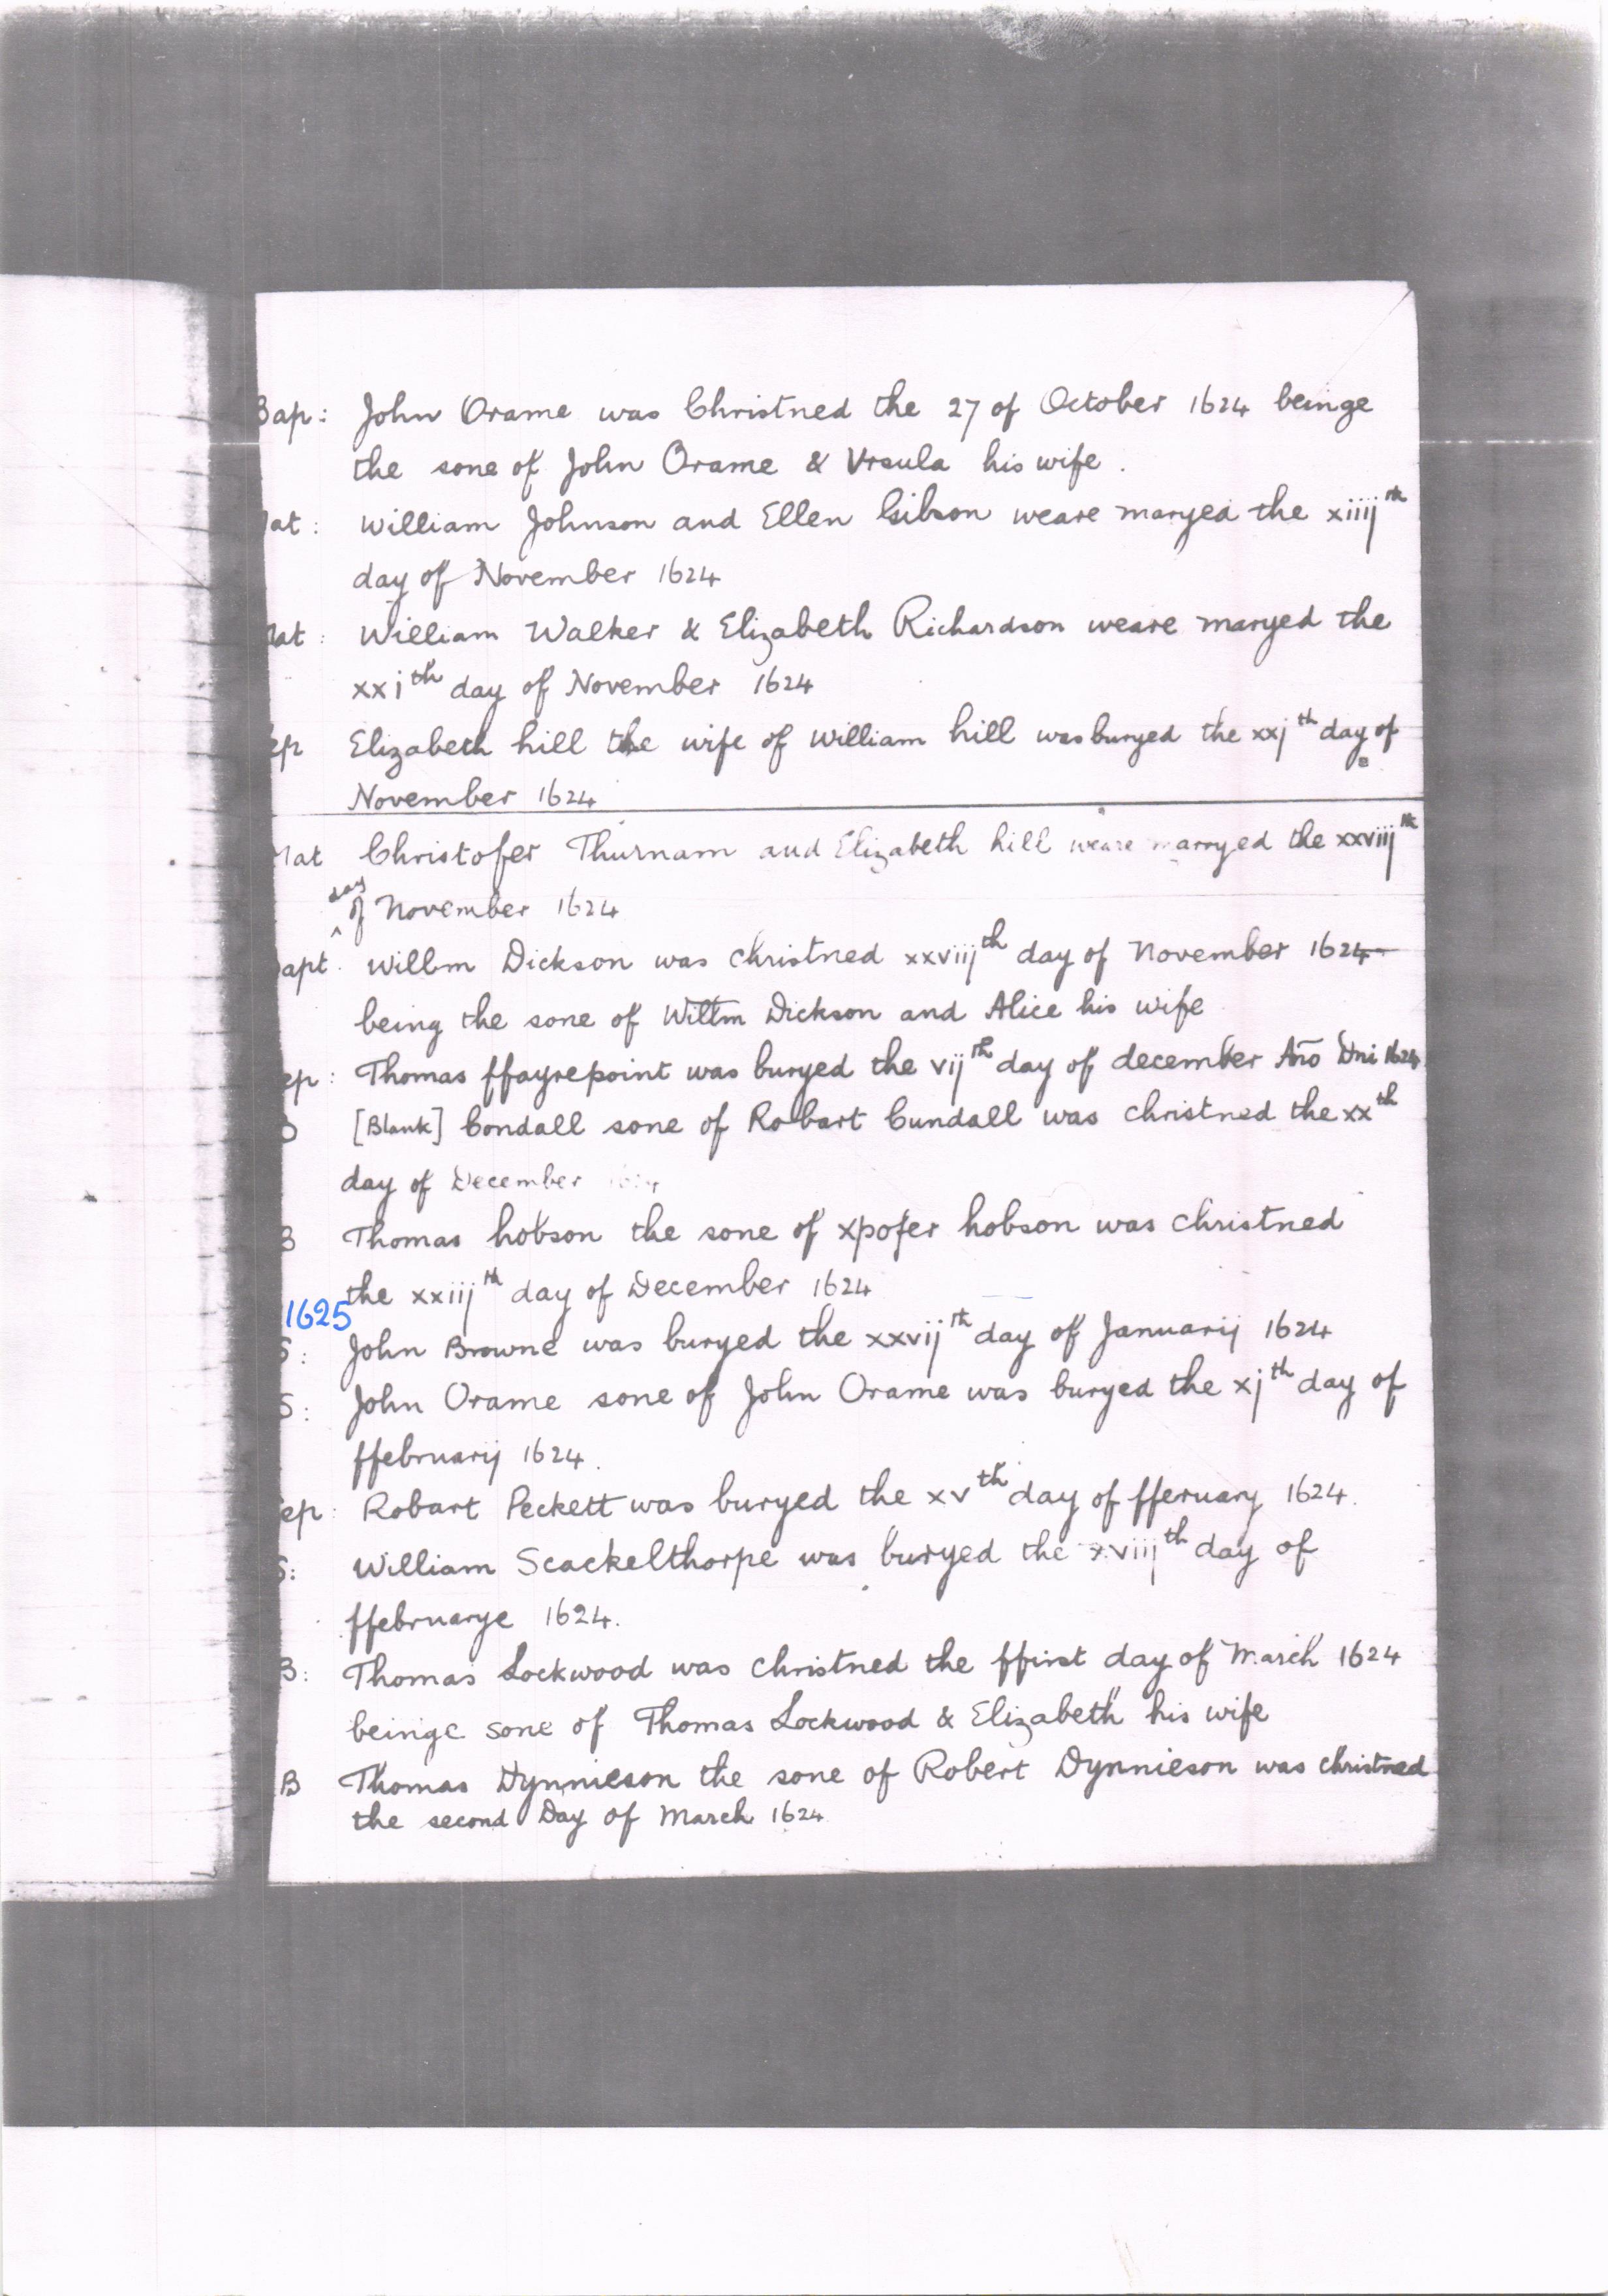 Bap: John Orame was Christned the 27 of October 1624 beinge
the sone of John Orame & Vrsula his wife.
at: William Johnson and Ellen Gibson weare maryed the xiiijth
day of November 1624
Mat: William Walker & Elizabeth Richardson weare maryed the
xxjth day of November 1624
ep Elizabeth hill the wife of William hill was buryed the xxjth day of
November 1624
Mat Christofer Thurnam and Elizabeth hill weare marryed the xxviijth
day
^ of November 1624
apt. Willm Dickson was christned xxviijth day of November 1624
being the sone of Willm Dickson and Alice his wife
ep: Thomas ffayrepoint was buryed the vijth day of december Año Dni 1624
B [Blank] Condall sone of Robart Cundall was christned the xxth
day of December 1624
B Thomas hobson the sone of xpofer hobson was christned
the xxiijth day of December 1624
1625
S: John Browne was buryed the xxvijth day of Januarij 1624
S: John Orame sone of John Orame was buryed the xjth day of
ffebruarij 1624.
ep: Robart Peckett was buryed the xvth day of fferuary 1624.
S: William Scackelthorpe was buryed the xviijth day of
ffebruarye 1624.
B: Thomas Lockwood was christned the ffirst day of March 1624
beinge sone of Thomas Lockwood & Elizabeth his wife
B Thomas Dynnieson the sone of Robert Dynnieson was christned
the second Day of March 1624